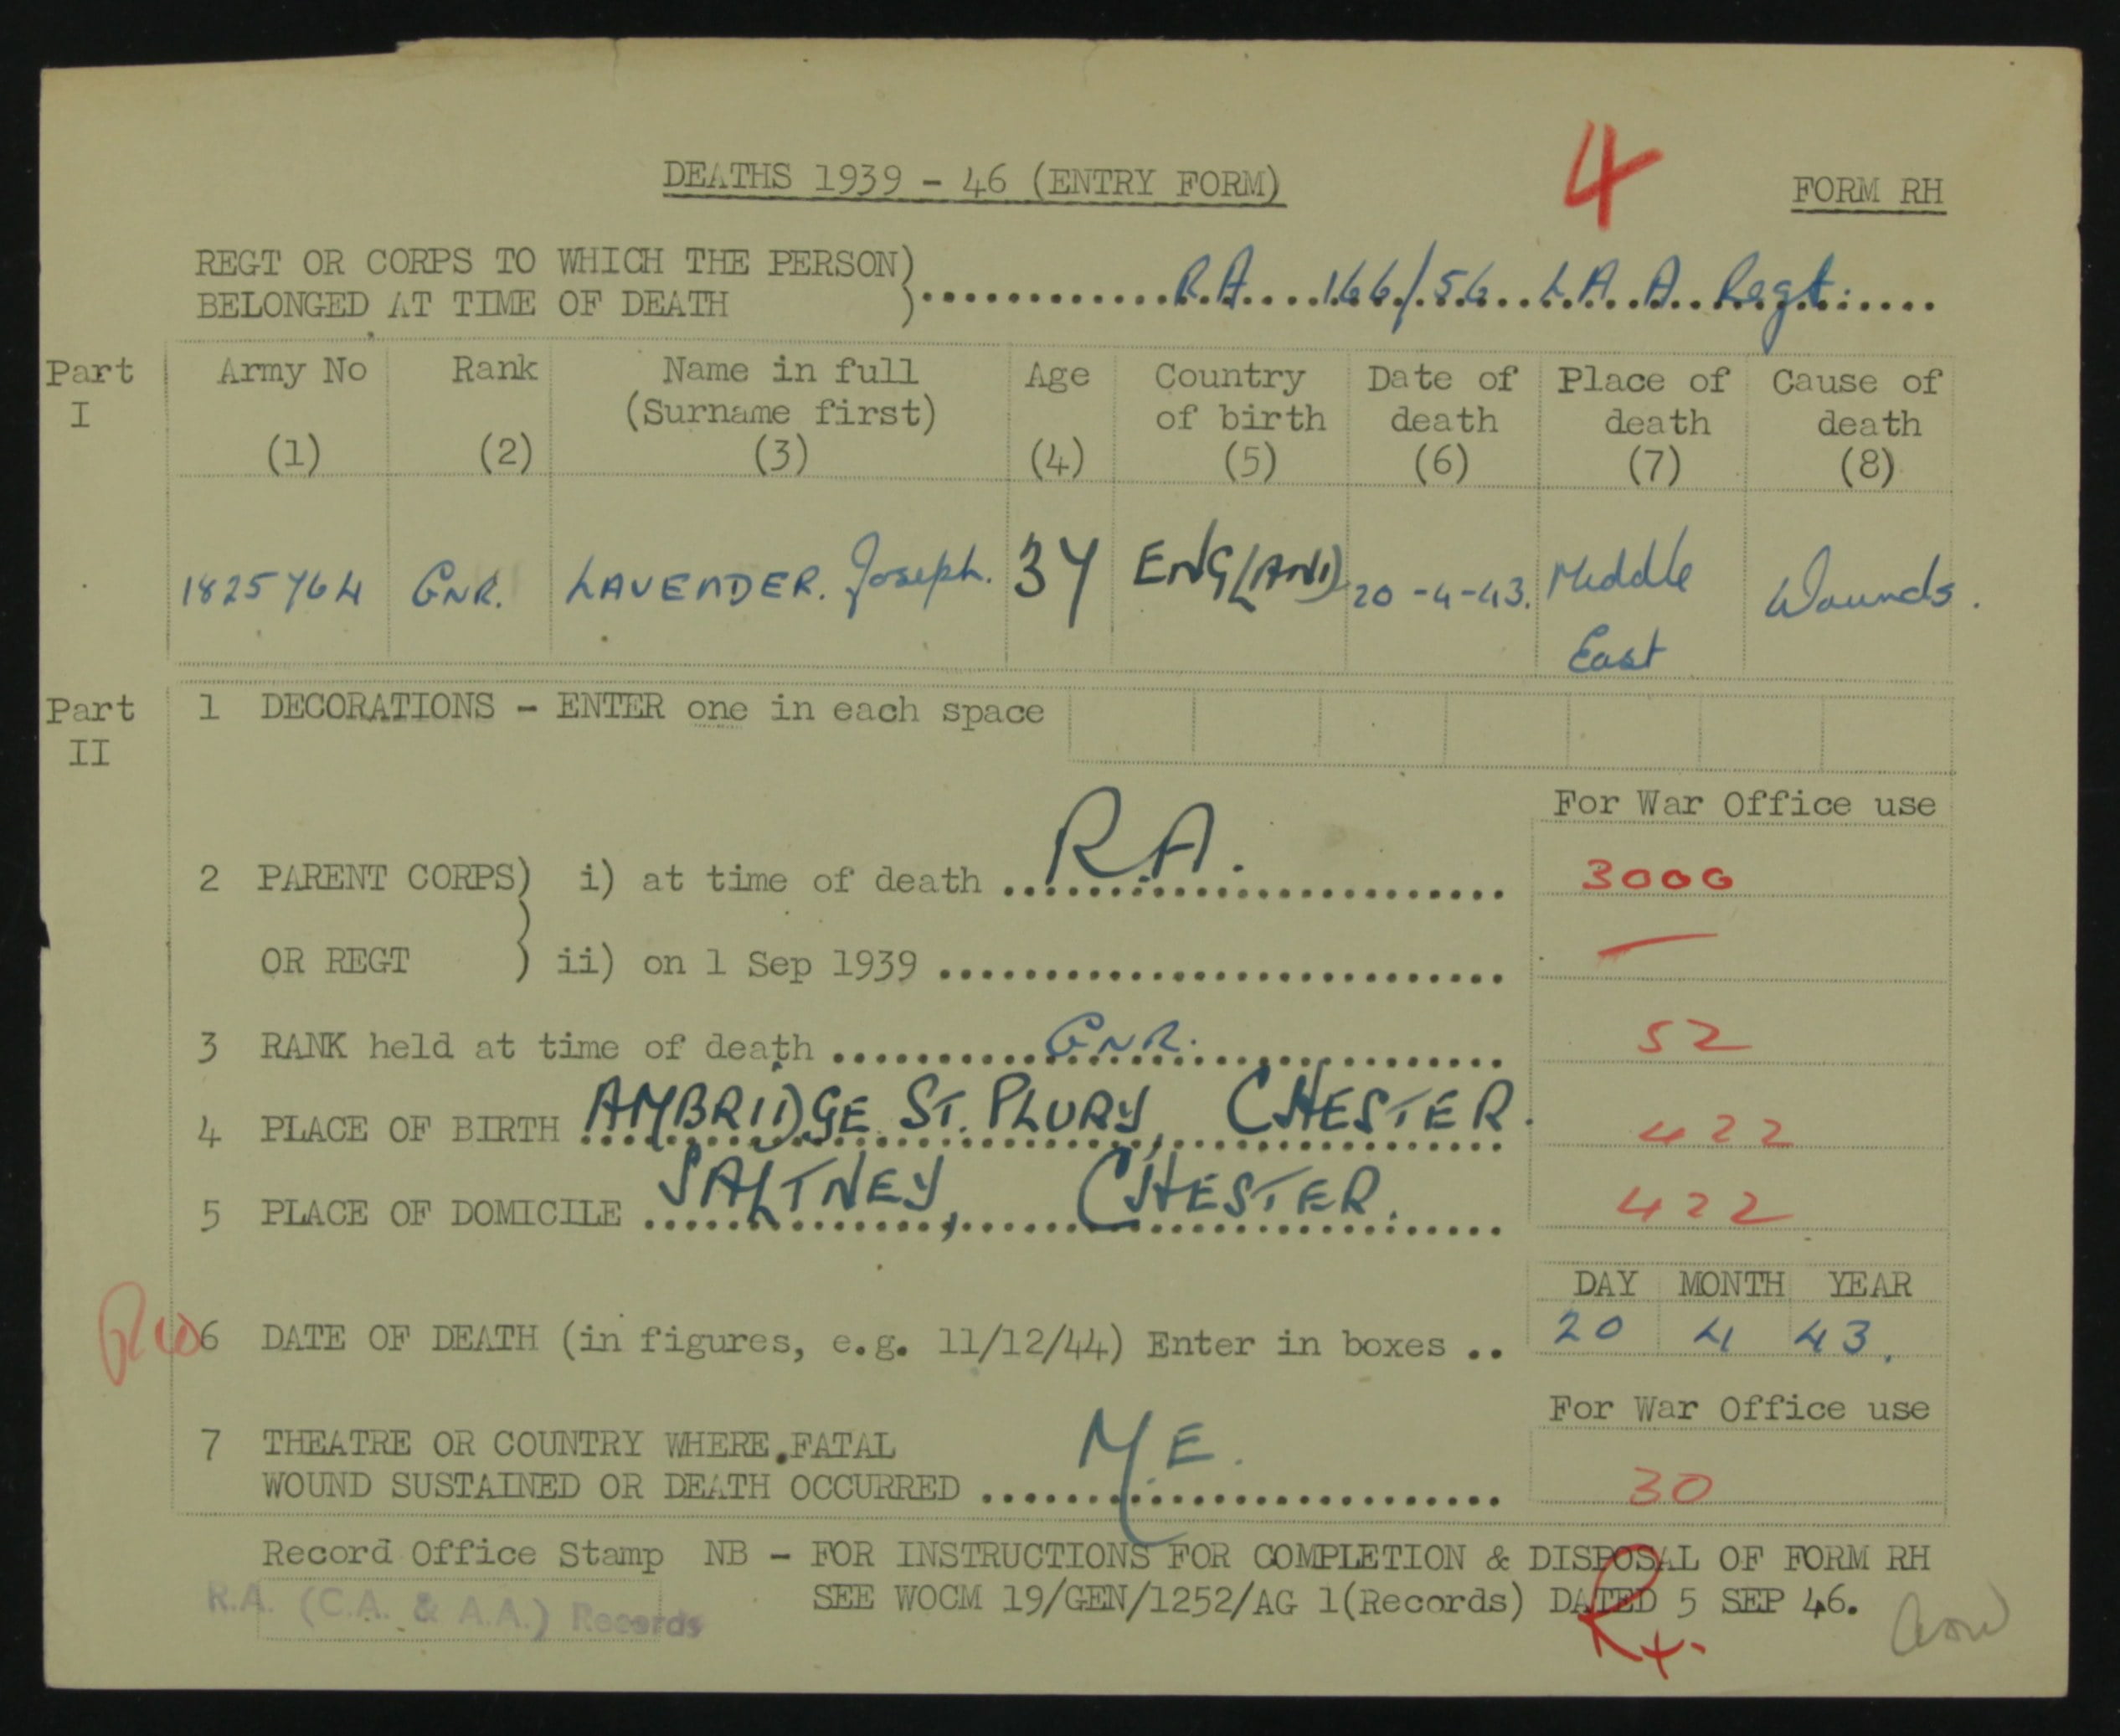 DEATHS 1939 - 46 (ENTRY FORM)
4
FORM RH
REGT OR CORPS TO WHICH THE PERSON)
BELONGED AT TIME OF DEATH ) R.A. 166/56 L.A.A. Regt.
Part I
Army No Rank Name in full (Surname first) Age Country of birth Date of death Place of death Cause of death
(1) (2) (3) (4) (5) (6) (7) (8)
1825764 GNR. LAVENDER. Joseph. 37 ENGLAND 20-4-43. Middle East Wounds.
Part II
1 DECORATIONS - ENTER one in each space
For War Office use
2 PARENT CORPS) i) at time of death R.A. 3000
OR REGT ) ii) on 1 Sep 1939
3 RANK held at time of death GNR. 52
4 PLACE OF BIRTH AMBRIDGE ST. PLURY, CHESTER. 422
5 PLACE OF DOMICILE SALTNEY, CHESTER. 422
DAY MONTH YEAR
6 DATE OF DEATH (in figures, e.g. 11/12/44) Enter in boxes .. 20 4 43.
For War Office use
7 THEATRE OR COUNTRY WHERE FATAL
WOUND SUSTAINED OR DEATH OCCURRED M.E. 30
Record Office Stamp NB - FOR INSTRUCTIONS FOR COMPLETION & DISPOSAL OF FORM RH
SEE WOCM 19/GEN/1252/AG 1(Records) DATED 5 SEP 46.
R.A. (C.A. & A.A.) Records